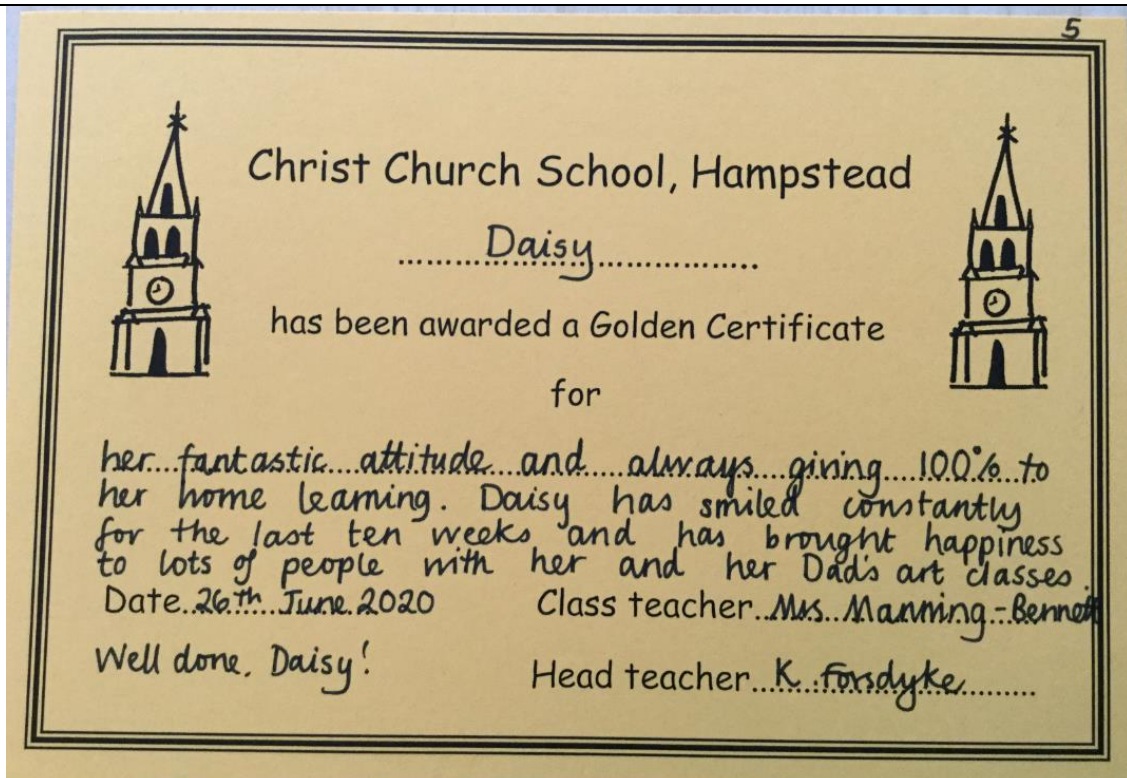 5
Christ Church School, Hampstead
Daisy
has been awarded a Golden Certificate
for
her fantastic attitude and always giving 100% to
her home learning. Daisy has smiled constantly
for the last ten weeks and has brought happiness
to lots of people with her and her Dad's art classes.
Date 26th June 2020 Class teacher Mrs. Manning-Bennett
Well done, Daisy! Head teacher K Forsdyke